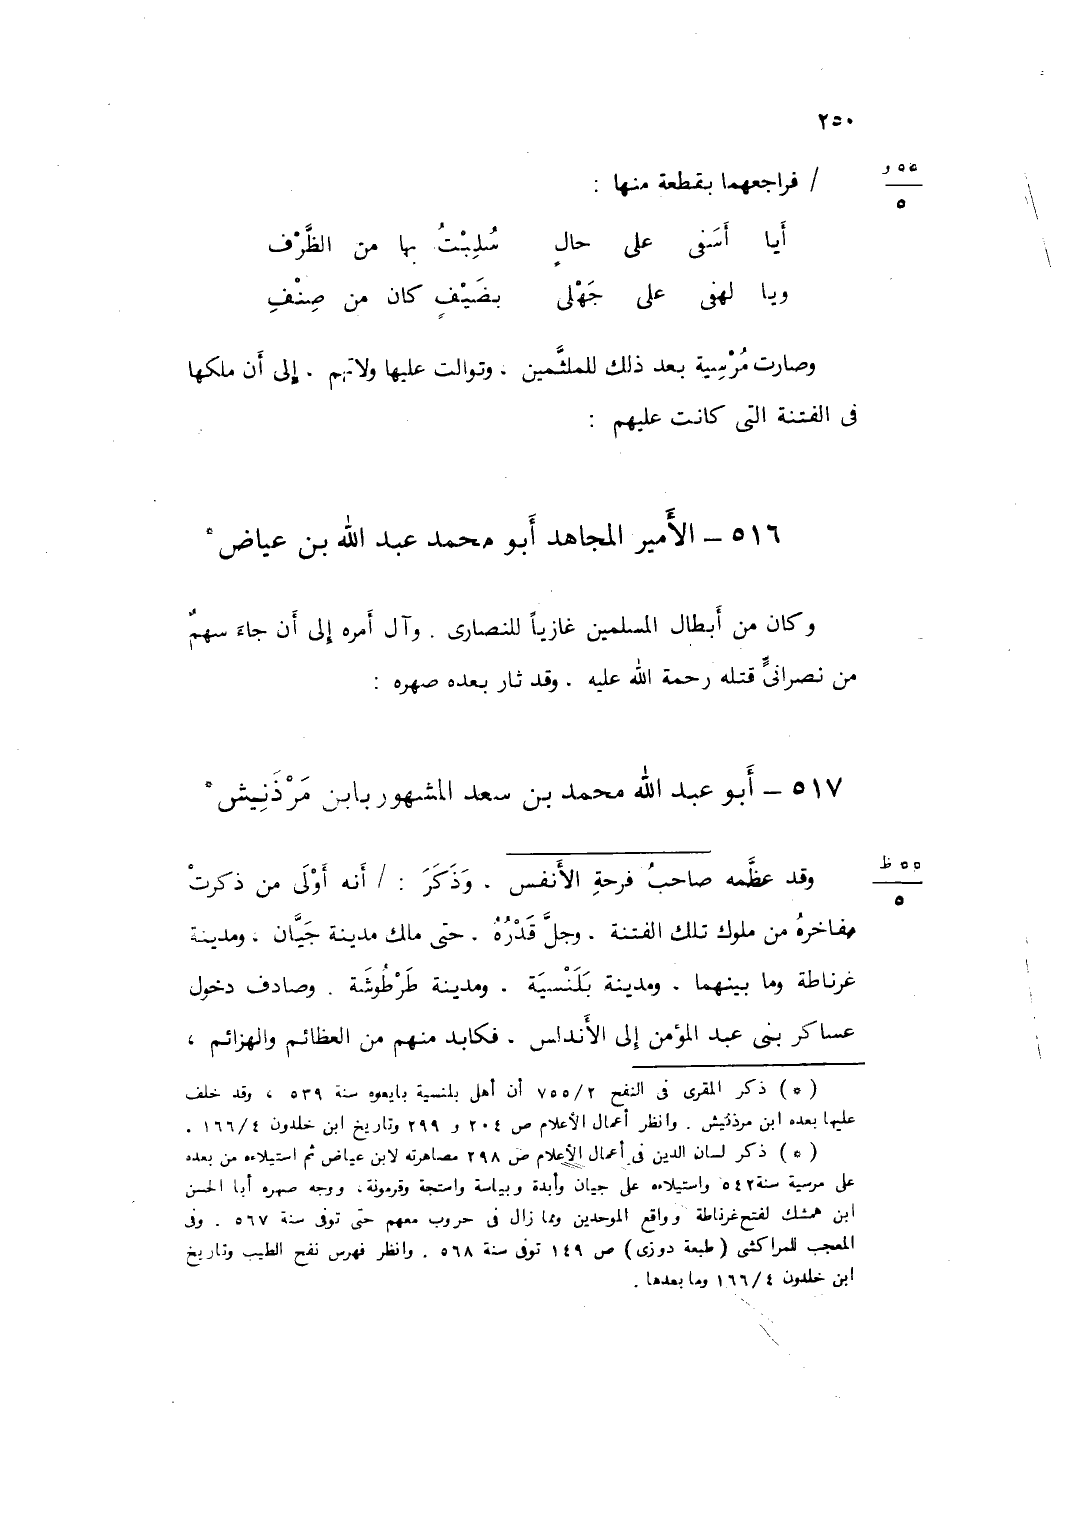 ٢٥٠
٥٥ و
٥
/ فراجعهما بقطعة منها :
أَيا أَسَفى على حالٍ سُلِبْتُ بها من الظَّرْف
ويا لهفى على جَهْلى بضَيْفٍ كان من صِنْفِ
وصارت مُرْسِية بعد ذلك للملثَّمين ، وتوالت عليها ولاتهم ، إلى أَن ملكها
فى الفتنة التى كانت عليهم :
٥١٦ – الأَمير المجاهد أَبو محمد عبد الله بن عياض *
وكان من أَبطال المسلمين غازياً للنصارى . وآل أَمره إلى أَن جاءَ سهمٌ
من نصرانىٍّ قتله رحمة الله عليه . وقد ثار بعده صهره :
٥١٧ – أَبو عبد الله محمد بن سعد المشهور بابن مَرْذَنِيش *
٥٥ ظ
٥
وقد عظَّمه صاحبُ فرحةِ الأَنفس . وَذَكَرَ : / أَنه أَوْلَى من ذكرتْ
مفاخرهُ من ملوك تلك الفتنة . وجلَّ قَدْرُهُ . حتى ملك مدينة جَيَّان ، ومدينة
غرناطة وما بينهما ، ومدينة بَلَنْسيَة ، ومدينة طَرْطُوشَة . وصادف دخول
عساكر بنى عبد المؤمن إلى الأَندلس . فكابد منهم من العظائم والهزائم ،
( * ) ذكر المقرى فى النفح ٢/ ٧٥٥ أن أهل بلنسية بايعوه سنة ٥٣٩ ، وقد خلف
عليها بعده ابن مرذنيش . وانظر أعمال الأعلام ص ٢٠٤ و ٢٩٩ وتاريخ ابن خلدون ٤/ ١٦٦ .
( * ) ذكر لسان الدين فى أعمال الأعلام ص ٢٩٨ مصاهرته لابن عياض ثم استيلاءه من بعده
على مرسية سنة ٥٤٢ واستيلاءه على جيان وأبدة وبياسة واستجة وقرمونة ، ووجه صهره أبا الحسن
ابن همشك لفتح غرناطة وواقع الموحدين وما زال فى حروب معهم حتى توفى سنة ٥٦٧ . وفى
المعجب للمراكشى ( طبعة دوزى ) ص ١٤٩ توفى سنة ٥٦٨ . وانظر فهرس نفح الطيب وتاريخ
ابن خلدون ٤/ ١٦٦ وما بعدها .